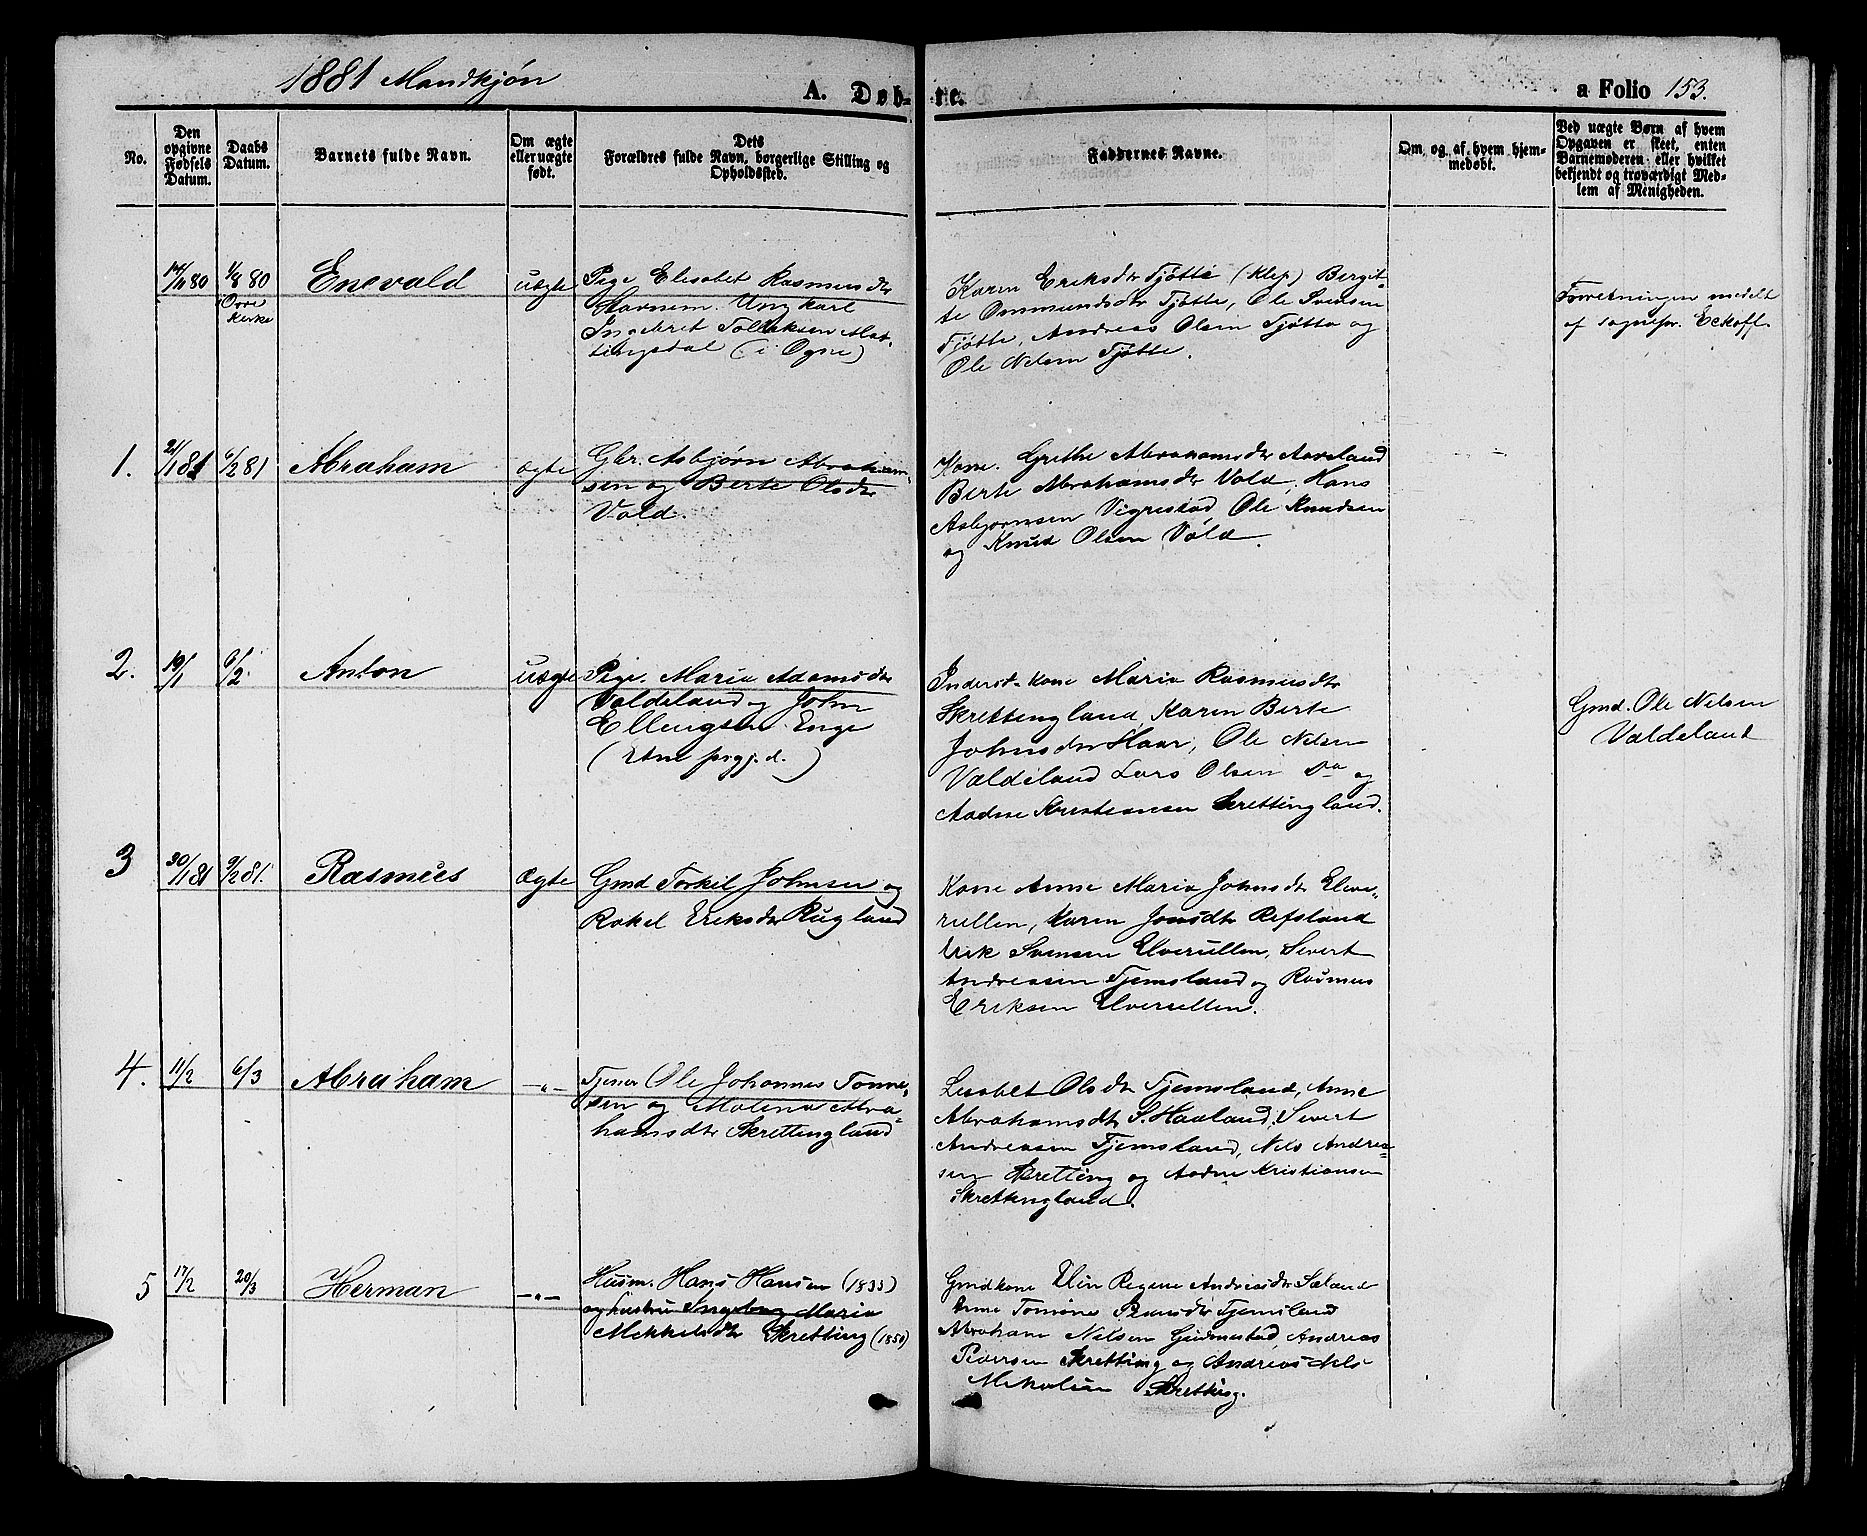 1881 Mandkjøn
A. Døb-
te.
a Folio 153.
No.
Den opgivne Fødsels Datum.
Daabs Datum.
Barnets fulde Navn.
Om ægte eller uægte født.
Dets Forældres fulde Navn, borgerlige Stilling og Opholdssted.
Faddernes Navne.
Om, og af hvem hjem-
medøbt.
Ved uægte Børn af hvem
Opgaven er skeet, enten
Barnemoderen eller hvilket
bekjendt og troværdigt Med-
lem af Menigheden.
80
1/8 80
kirke
Enevald
uægte
Pige Elisabet Rasmusdtr
Ungkarl
Tollaksen
(i Ogne)
Karen Eriksdtr Tjøtte (Klep) Bergit-
te Ommundsdtr Tjøtte, Ole Svensen
Tjøtte, Andreas Olsen Tjøtta og
Ole Nelsen Tjøtte.
Forretningen medelt
af sognepr. Eckoff.
1.
21/1 81
6/2 81
Abraham
ægte
Gbr. Asbjørn Abraham-
sen og Berte Olsdtr
Vold.
Kone. Grethe Abrahamsdtr Aareland
Berte Abrahamsdtr Vold, Hans
Asbjørnsen Vigrestad Ole Knudsen
og Knud Olsen Vold.
2.
19/1
6/2
Anton
uægte
Pige. Maria Adamsdtr
Valdeland og John
Ellengsen Enge
(Etne prgj.d.)
Inderst-kone Maria Rasmusdtr
Skrettingland, Karen Berte
Johnsdtr Haar, Ole Nelsen
Valdeland Lars Olsen Do og
Aadne Kristiansen Skrettingland.
Gmd. Ole Nelsen
Valdeland
3
30/1 81
9/2 81.
Rasmus
Ægte
Gmd Torkil Johnsen og
Rakel Eriksdtr Rugland
Kone Anne Maria Johnsdtr Elve-
rullen, Karen Jonsdtr Refsland
Erik Svensen Elverullen, Sivert
Andreasen Tjemsland og Rasmus
Eriksen Elverullen.
4.
11/2
6/3
Abraham
—"—
Tjener Ole Johannes Tonne-
sen og Malena Abra-
hamsdtr Skrettingland
Lisabet Olsdtr Tjemsland, Anne
Abrahamsdtr S. Haaland, Sivert
Andreasen Tjemsland, Nils Andrea-
sen Skretting og Aadne Kristiansen
Skrettingland.
5
17/2
20/3
Herman
—"—
Husm. Hans Hansen (1835)
og hustru Ingeborg Maria
Mekkelsdtr Skretting (1850)
Gmdkone Elin Regine Andreasdtr Sæland
Anne Tomine Tjemsland
Abraham Nilsen Gudmestad, Andreas
Pedersen Skretting og Andreas Nels
Skretting.